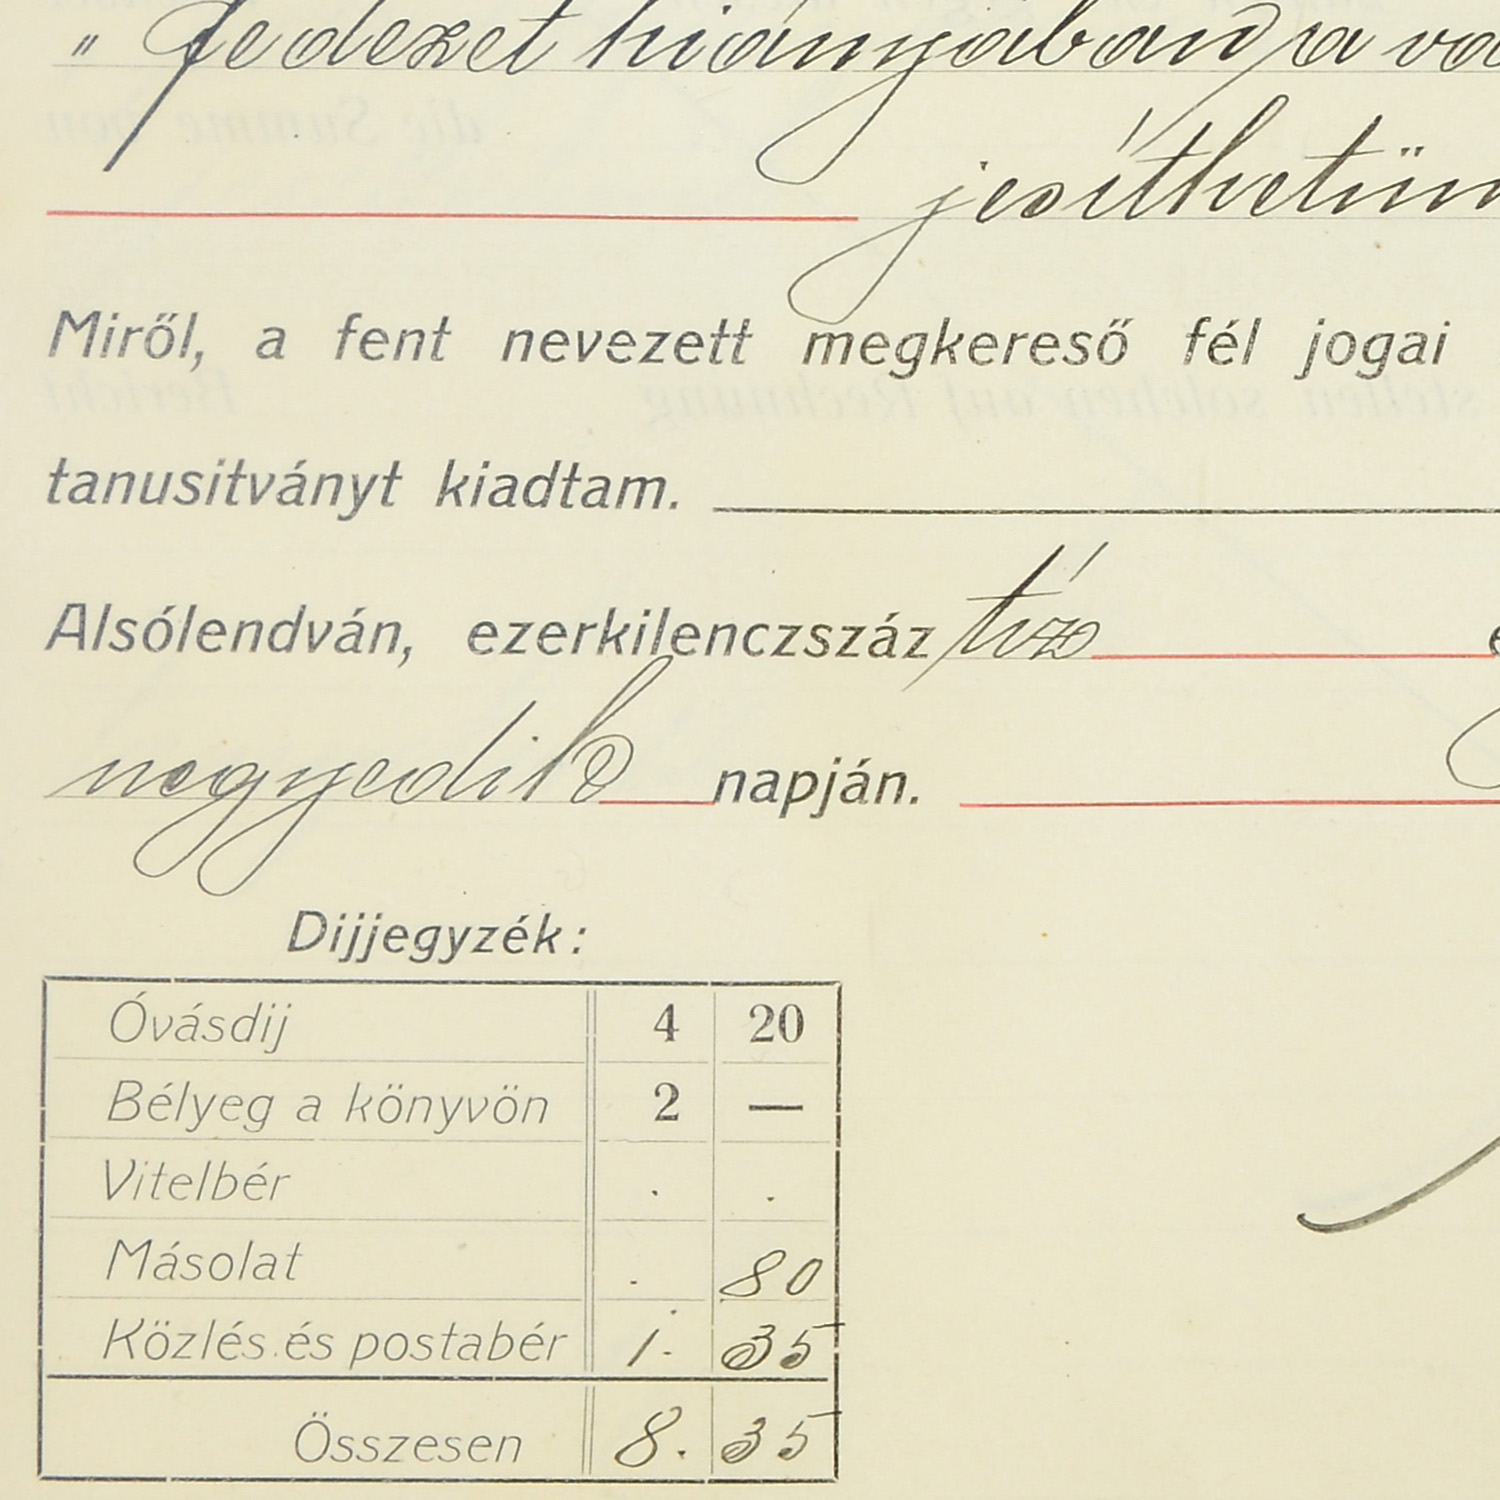 " fedezet hiányában a
jesíthetün
Miről, a fent nevezett megkereső fél jogai
tanusitványt kiadtam.
Alsólendván, ezerkilenczszáz tíz
negyedik napján.
Dijjegyzék:
Óvásdij 4 20
Bélyeg a könyvön 2 —
Vitelbér . .
Másolat . 80
Közlés és postabér 1. 35
Összesen 8. 35